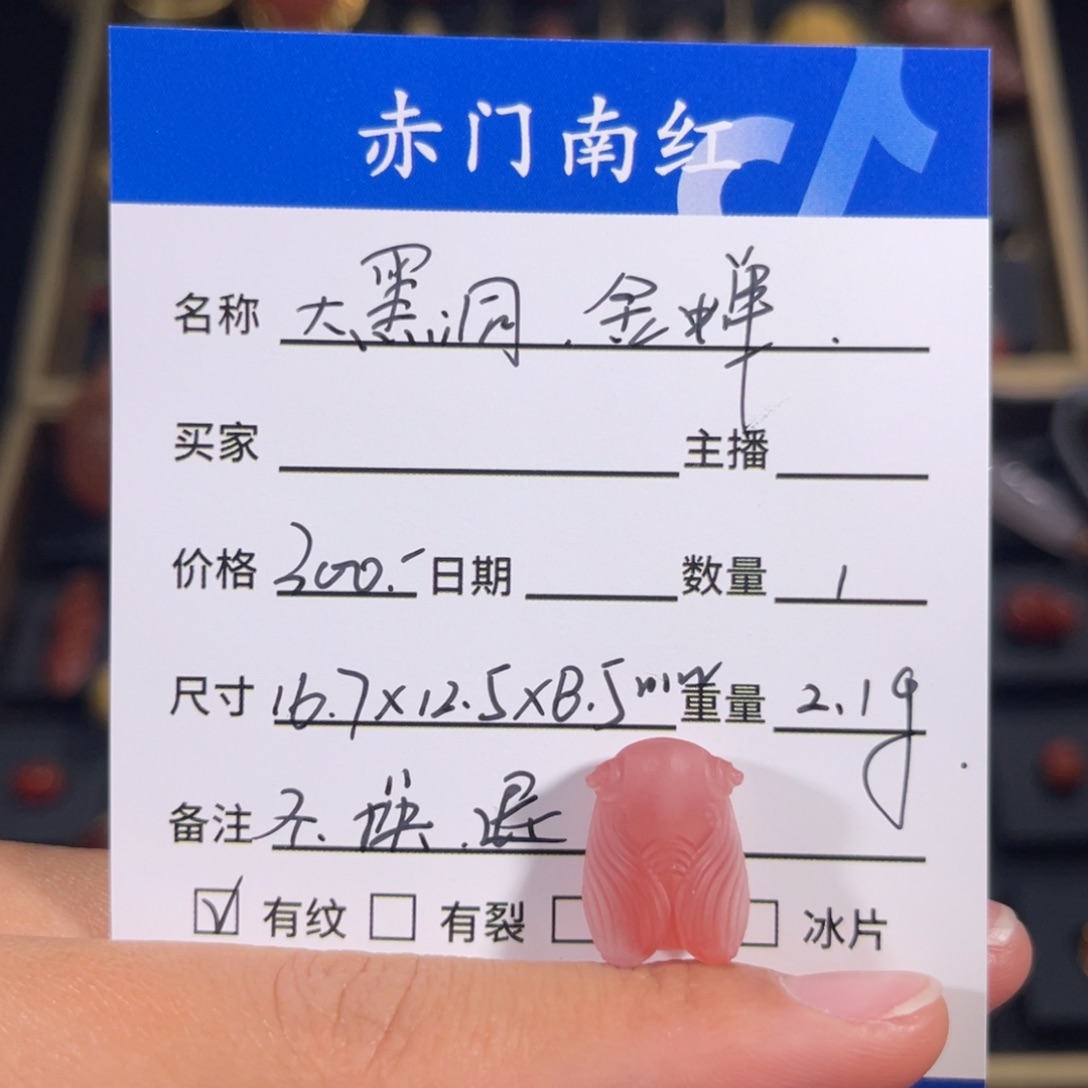 赤门南红
名称 大黑洞.金蝉.
买家 主播
价格 300.- 日期 数量 1
尺寸 16.7×12.5×8.5mm 重量 2.1g
备注 不.换.退
☑ 有纹 □ 有裂 □ □ 冰片